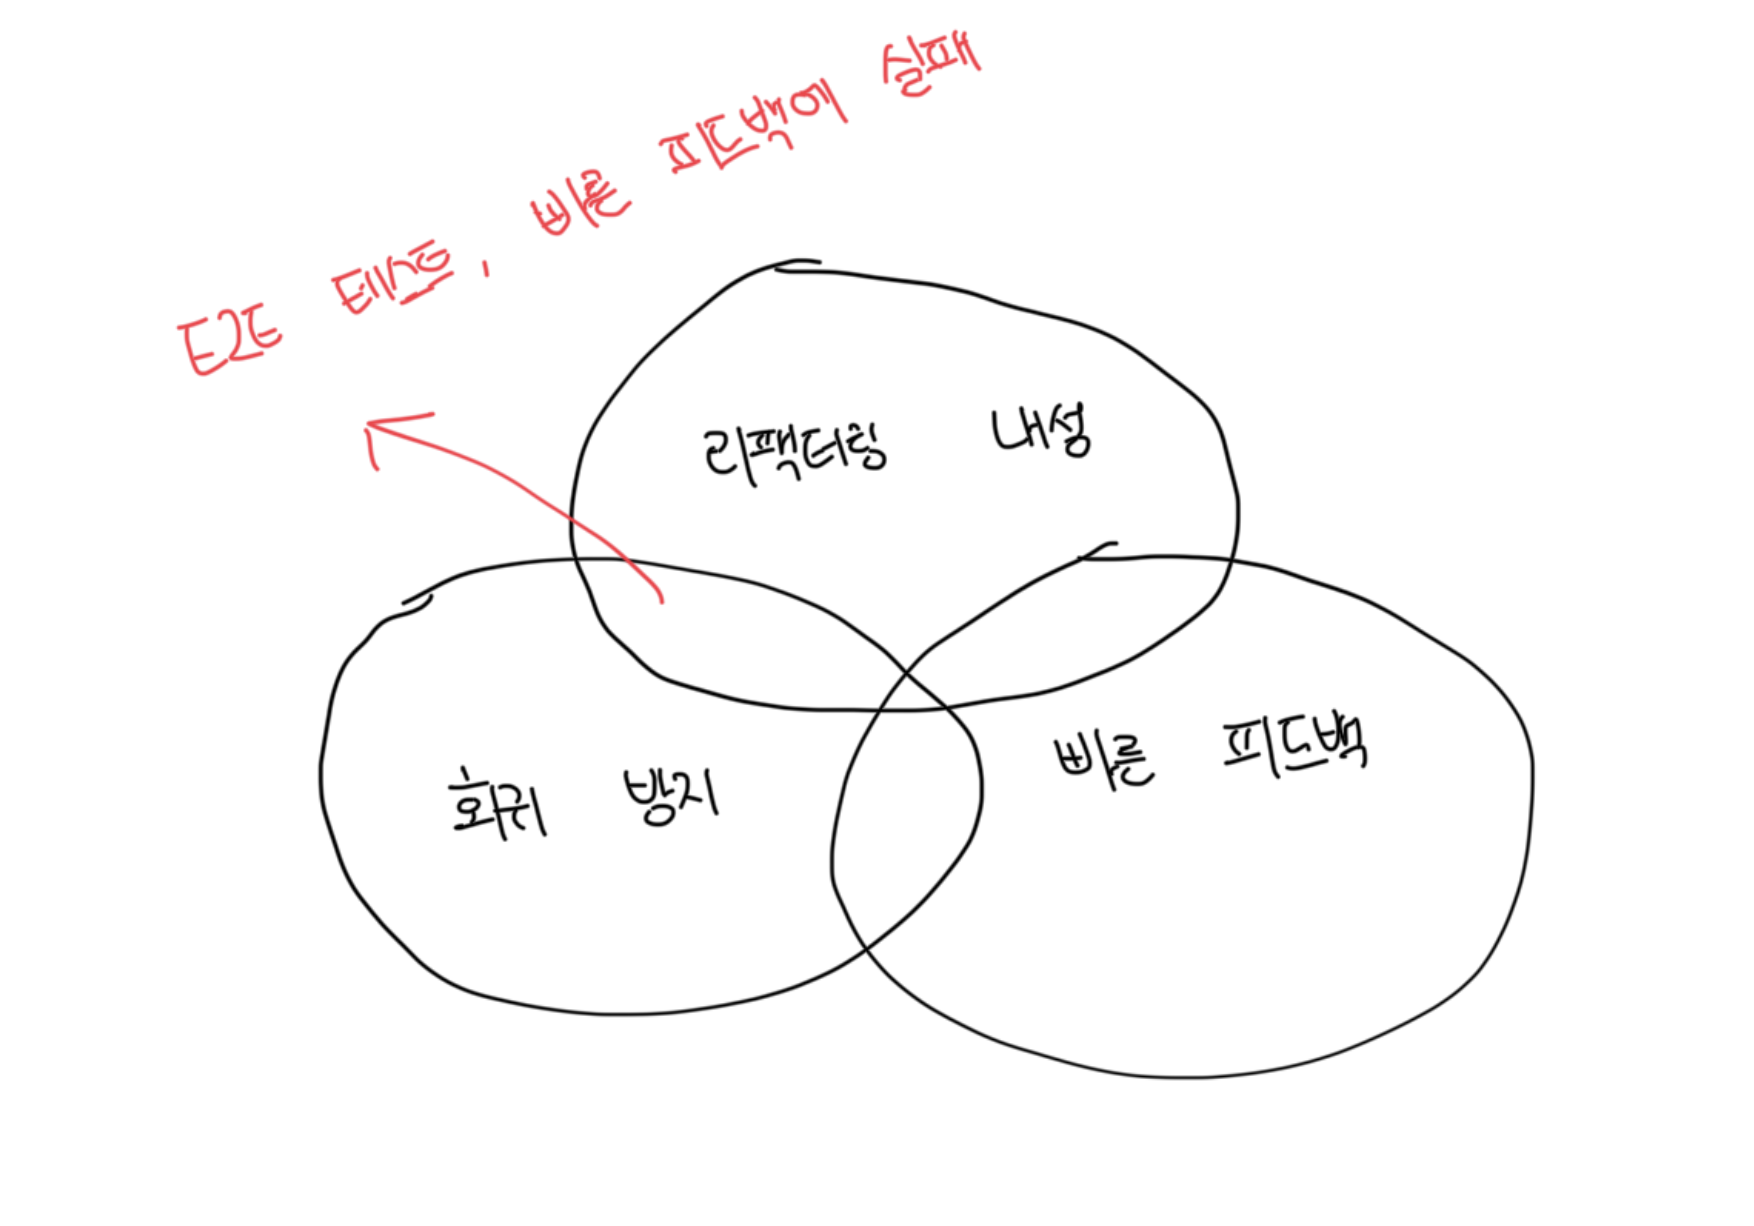 E2E 테스트, 빠른 피드백에 실패
리팩터링 내성
회귀 방지
빠른 피드백